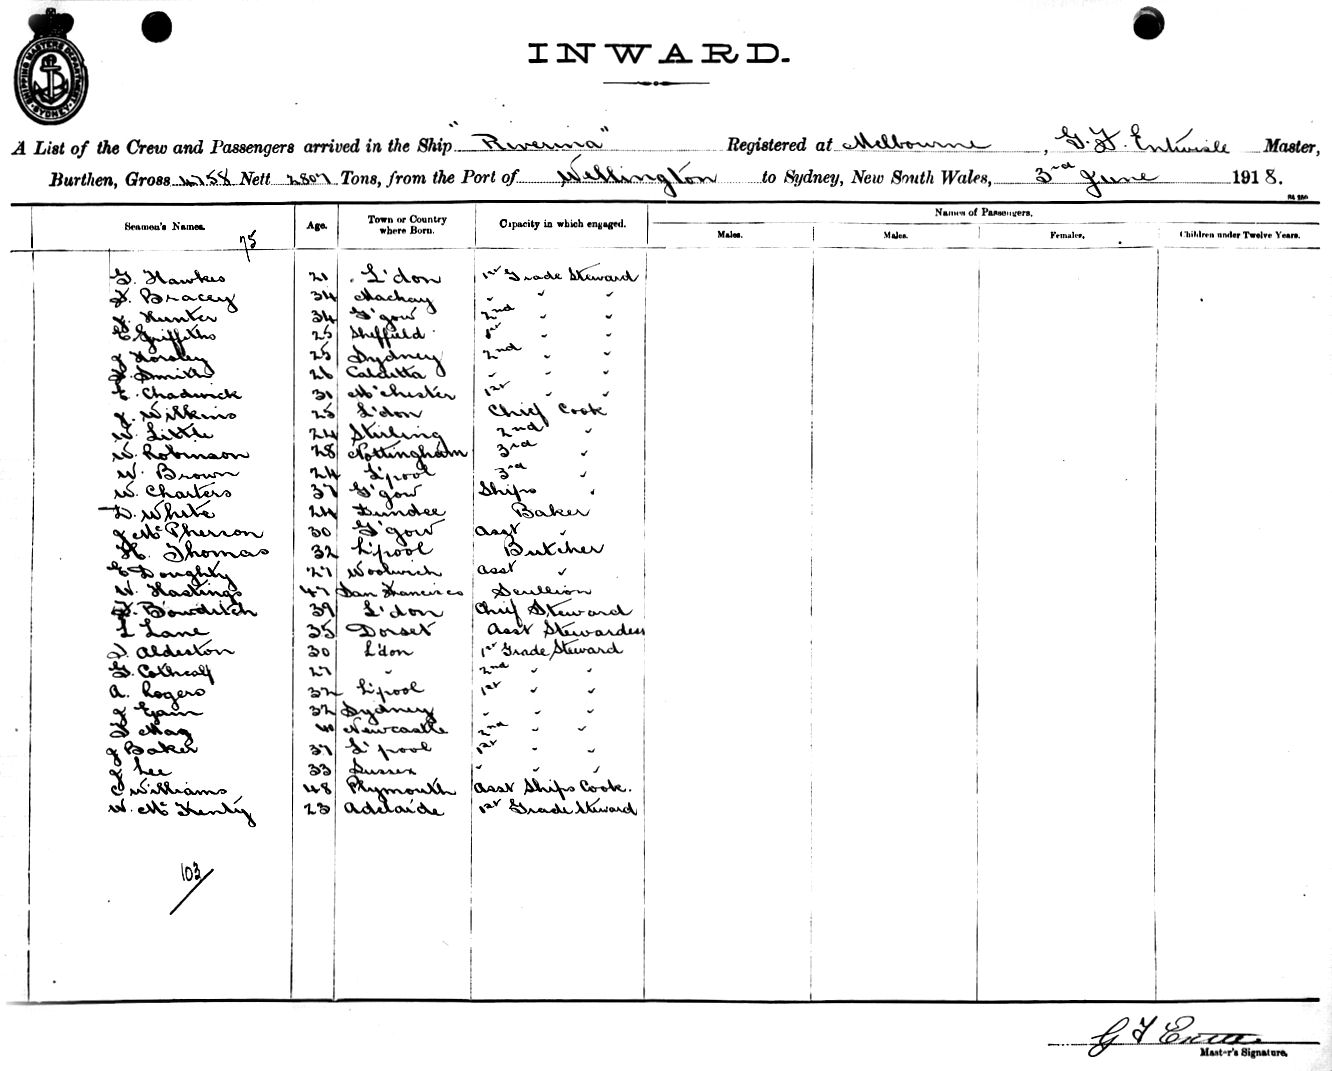 SHIPPING MASTERS DEPARTMENT SYDNEY
INWARD.
A List of the Crew and Passengers arrived in the Ship "Riverina" Registered at Melbourne, G. F. Entwisle Master,
Burthen, Gross 4758 Nett 2807 Tons, from the Port of Wellington to Sydney, New South Wales, 3rd June 1918.
Seamen's Names. Age. Town or Country where Born. Capacity in which engaged. Names of Passengers.
Males. Males. Females. Children under Twelve Years.
75
G. Hawkes 21 L'don 1st Grade Steward
Bracey 34 Mackay " " "
Hunter 34 G'gow 2nd " "
E Griffiths 25 Sheffield 1st " "
J Horsley 25 Sydney 2nd " "
Smith 26 Calcutta " " "
Chadwick 31 M'chester 1st " "
J. Wilkins 25 L'don Chief Cook
W. Little 24 Stirling 2nd "
W. Robinson 28 Nottingham 3rd "
W. Brown 24 L'pool 3rd "
W. Charters 37 G'gow Ships "
D. White 24 Dundee Baker
J McPherson 30 G'gow Asst "
H. Thomas 32 L'pool Butcher
E Doughty 27 Woolwich Asst "
W. Hastings 47 San Francisco Scullion
Bowditch 39 L'don Chief Steward
L Lane 35 Dorset Asst Stewardess
Aldeston 30 L'don 1st Grade Steward
G. 27 " 2nd " "
A. Rogers 32 L'pool 1st " "
J Egan 32 Sydney " " "
May 40 Newcastle 2nd " "
J Baker 37 L'pool 1st " "
J Lee 33 Sussex " " "
C Williams 48 Plymouth Asst Ships Cook.
W. McKenty 23 Adelaide 1st Grade Steward
103
G F
Master's Signature.